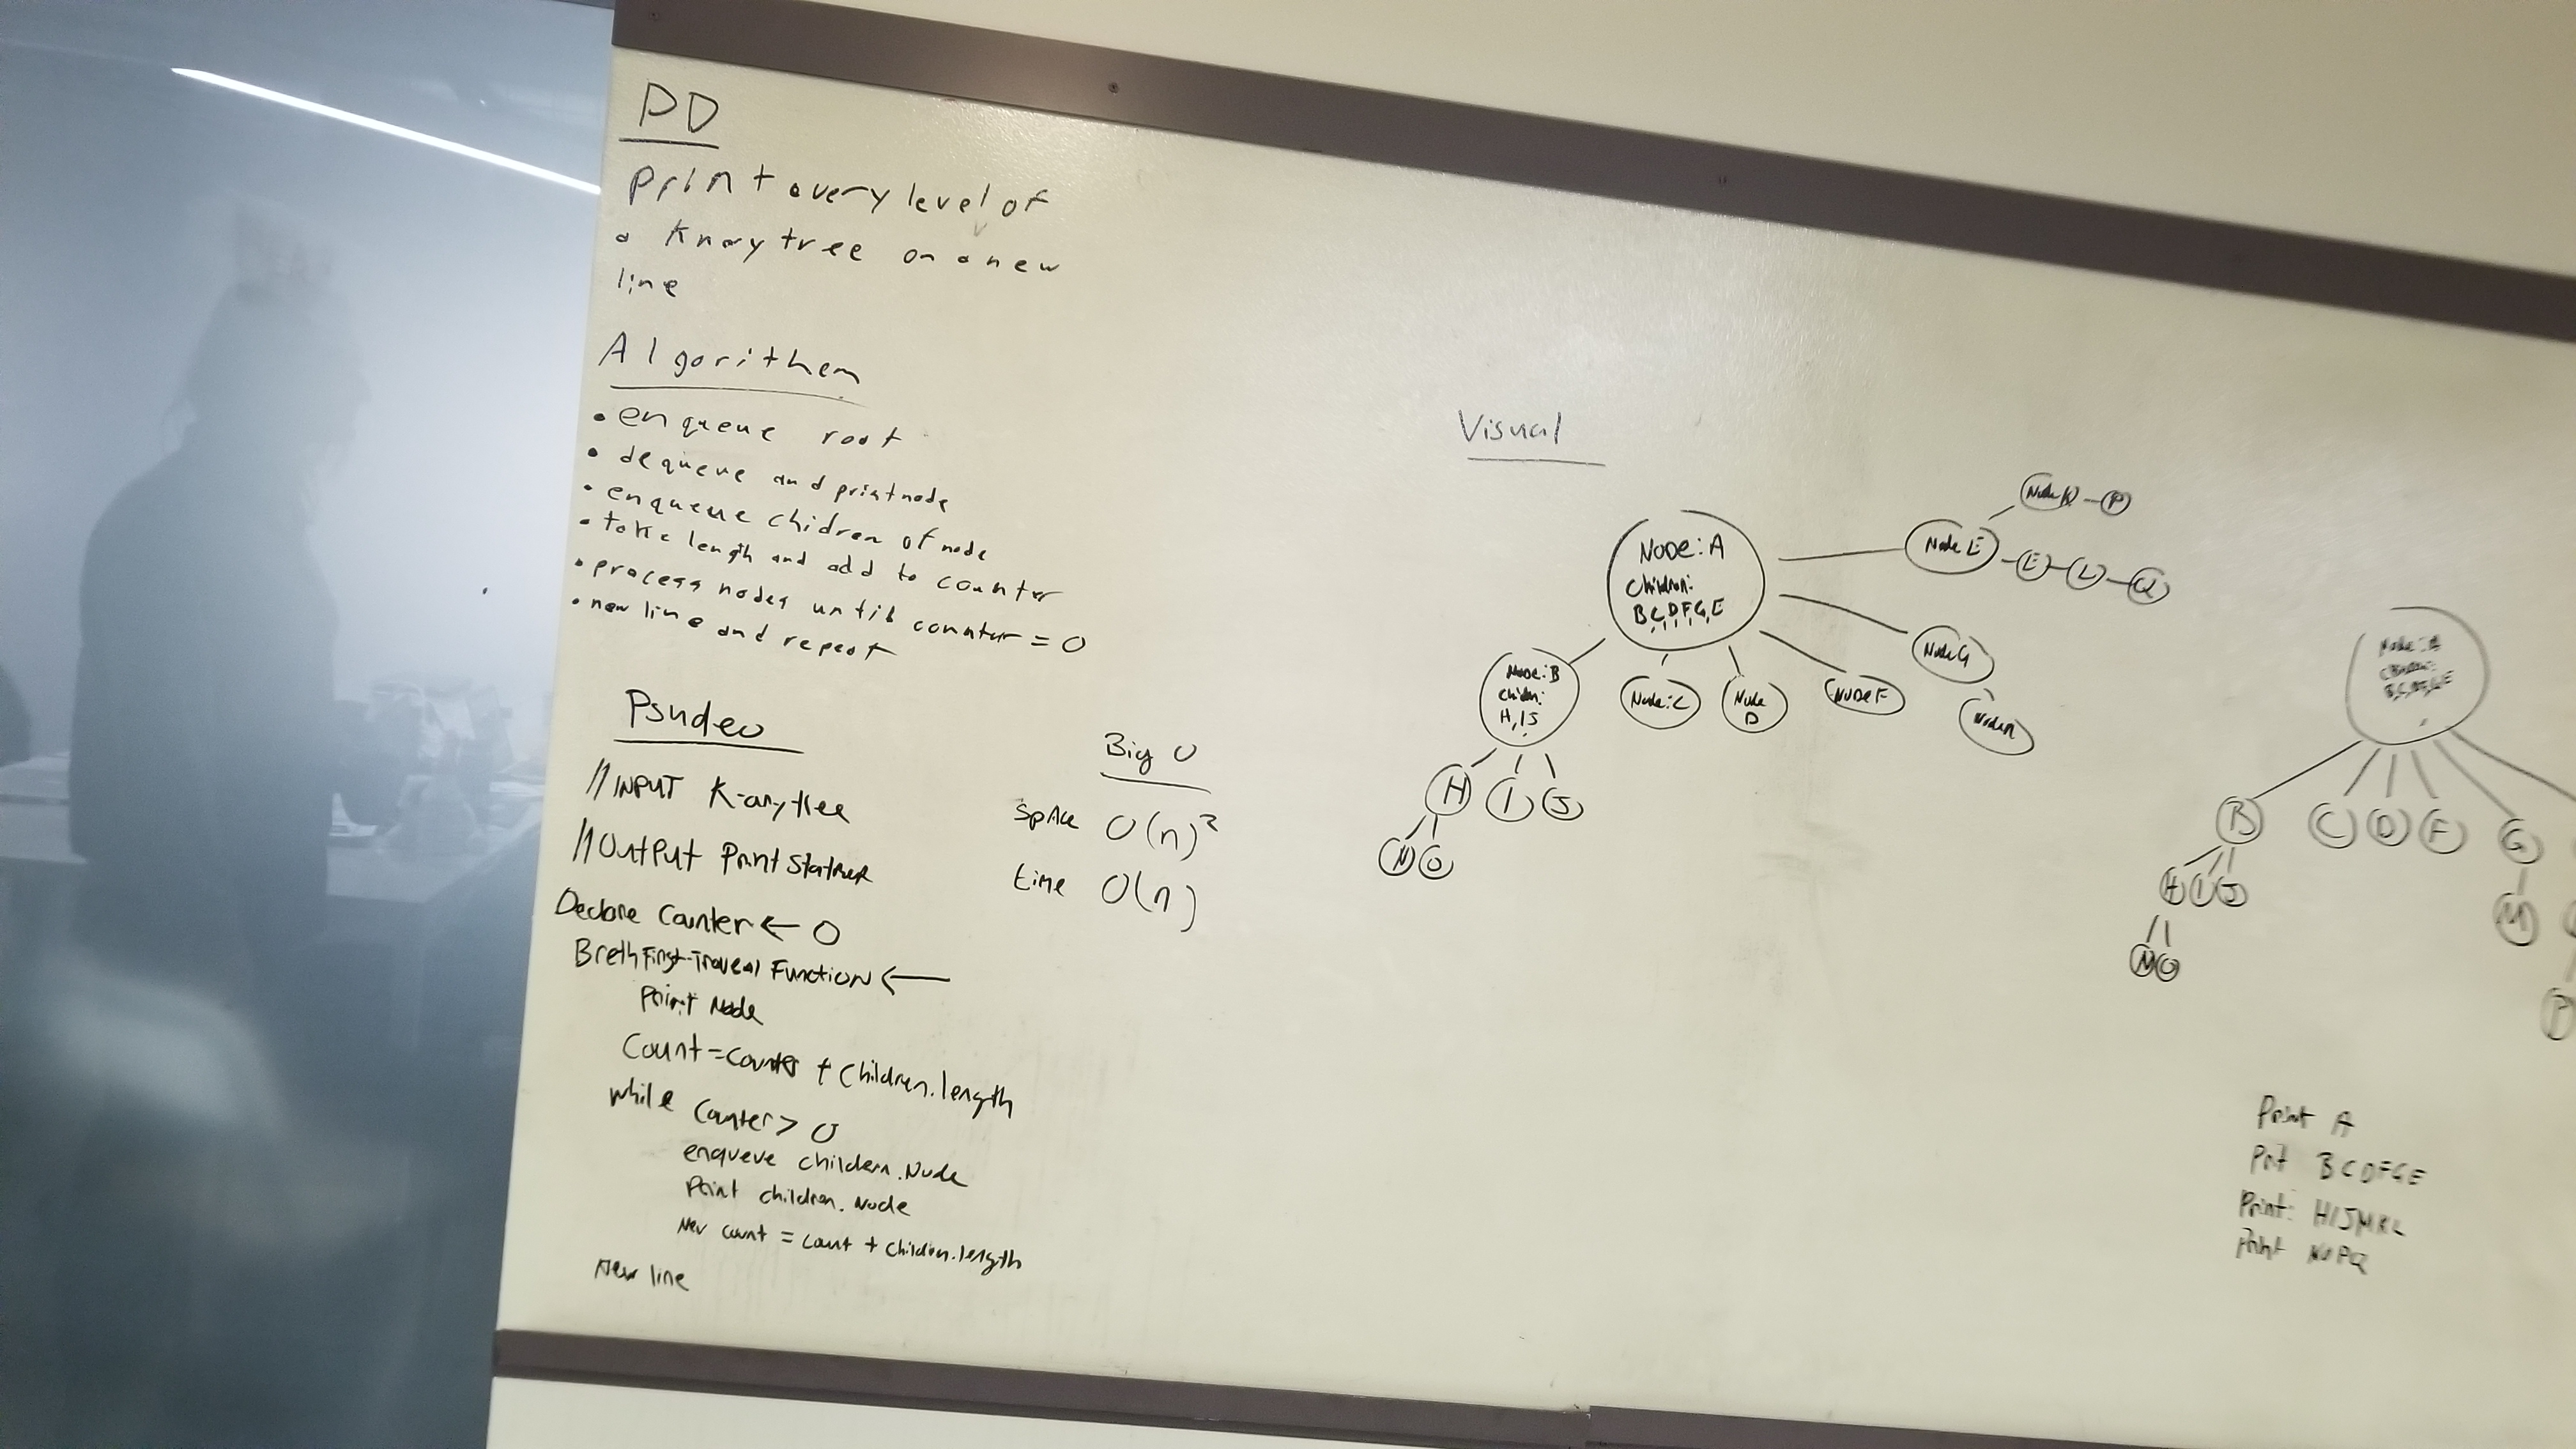 PD
print every level of
a Knary tree on a new
line
Algorithem
• enqueue root
• dequeue and print node
• enqueue chidren of node
• take length and add to counter
• process nodes until counter = 0
• new line and repeat
Psudeo
// INPUT K-ary tree
// OUTPUT Print
Declare Counter ← 0
BrethFirst-Traveral Function ←
Print Node
Count = Counter + Children.length
while Counter > 0
enqueue childern.Node
Print children.Node
New count = count + children.length
New line
Big O
Space O(n)²
time O(n)
Visual
Node:A
Children:
B,C,D,F,G,E
Node E
P
E
L
Q
Node G
Node F
Node D
Node:C
Node:B
H, I J
H I J
N O
Node:A
B,C,D,F,G,E
B C D F G
H I J
M
N O
P
Print A
Prt BCDFGE
Print: HIJMKL
Print NOPQ